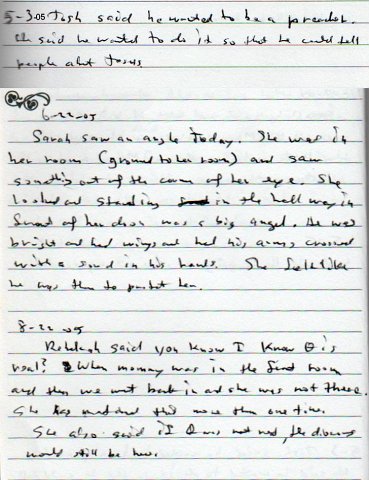 5-3-05 Josh said he wanted to be a preacher.
He said he wanted to do it so that he could tell
people abut Jesus
6-22-05
Sarah saw an angle today. She was in
her room (ground to her room) and saw
something out of the corner of her eye. She
looked and standing in the hall way in
front of her door was a big angel. He was
bright and had wings and had his arms crossed
with a sword in his hands. She felt like
he was there to protect her.
8-22-05
said you know I know is
real? When mommy was in the room
and then we went back in and she was not there.
She has this more than one time.
She also said if was not real, the
would still be here.